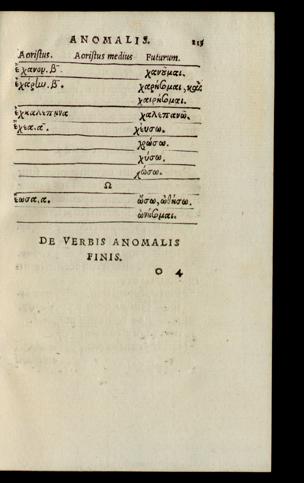 ANOMALIS. 215
Aoristus. Aoristus medius Futurum.
ἔχανον. β. χανοῦμαι.
ἐχάρην. β. χαρήσομαι, καὶ
χαιρήσομαι.
ἐχαλέπηνα χαλεπανῶ.
ἔχεα. α. χεύσω.
χρώσω.
χύσω.
χώσω.
Ω
ἔωσα. α. ὤσω, ὠθήσω.
ὠνήσομαι.
DE VERBIS ANOMALIS
FINIS.
O 4